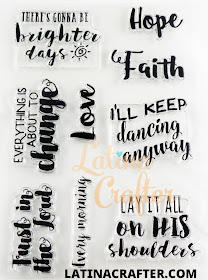 THERE'S GONNA BE
brighter
days
Hope
Faith
EVERYTHING IS
ABOUT TO
change
Love
I'LL KEEP
dancing
anyway
Latina
Crafter
Trust in
the Lord
Every morning
LAY IT ALL
ON HIS
shoulders
LATINACRAFTER.COM